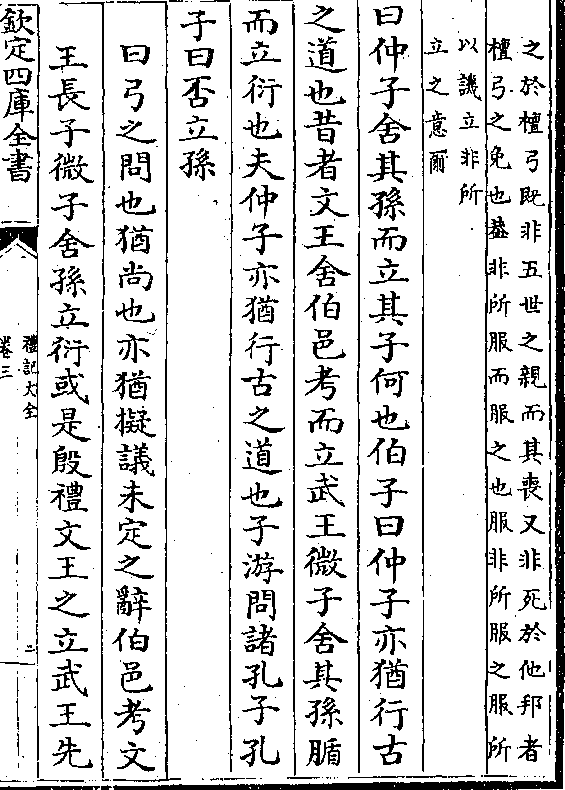 之於檀弓既非五世之親而其喪又非死於他邦者
檀弓之免也蓋非所服而服之也服非所服之服所
以譏立非所
立之意爾
曰仲子舍其孫而立其子何也伯子曰仲子亦猶行古
之道也昔者文王舍伯邑考而立武王微子舍其孫腯
而立衍也夫仲子亦猶行古之道也子游問諸孔子孔
子曰否立孫
曰弓之問也猶尚也亦猶擬議未定之辭伯邑考文
王長子微子舍孫立衍或是殷禮文王之立武王先
欽定四庫全書
禮記大全
卷三
二